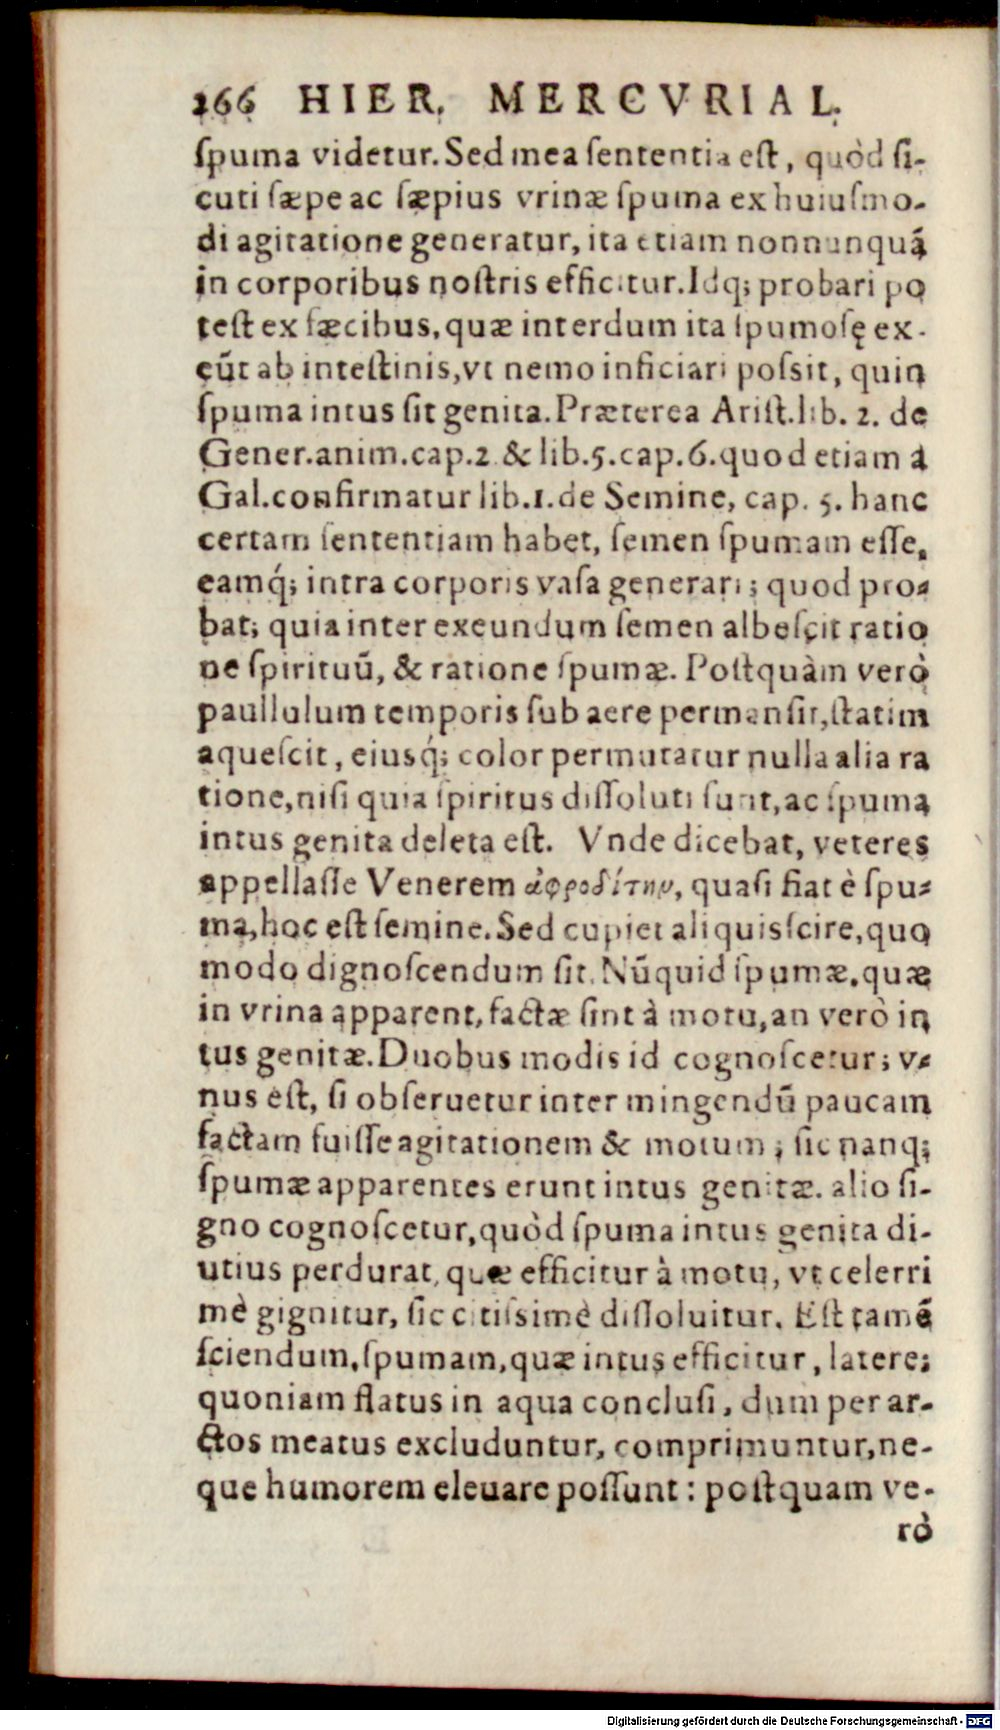 266 HIER. MERCVRIAL.
ſpuma videtur. Sed mea ſententia eſt, quòd ſi-
cuti ſæpe ac ſæpius vrinæ ſpuma ex huiuſmo-
di agitatione generatur, ita etiam nonnunquã
in corporibus noſtris efficitur. Idq; probari po
teſt ex fæcibus, quæ interdum ita ſpumoſę ex-
eũt ab inteſtinis, vt nemo inficiari poſsit, quin
ſpuma intus ſit genita. Præterea Ariſt. lib. 2. de
Gener. anim. cap. 2 & lib. 5. cap. 6. quod etiam à
Gal. confirmatur lib. 1. de Semine, cap. 5. hanc
certam ſententiam habet, ſemen ſpumam eſſe,
eamq́; intra corporis vaſa generari; quod pro-
bat; quia inter exeundum ſemen albeſcit ratio
ne ſpirituũ, & ratione ſpumæ. Poſtquàm verò
paullulum temporis ſub aere permanſit, ſtatim
aqueſcit, eiusq́; color permutatur nulla alia ra
tione, niſi quia ſpiritus diſſoluti ſunt, ac ſpuma
intus genita deleta eſt. Vnde dicebat, veteres
appellaſſe Venerem ἀφροδίτην, quaſi fiat è ſpu-
ma, hoc eſt ſemine. Sed cupiet aliquis ſcire, quo
modo dignoſcendum ſit. Nũquid ſpumæ, quæ
in vrina apparent, factæ ſint à motu, an verò in
tus genitæ. Duobus modis id cognoſcetur; v-
nus eſt, ſi obſeruetur inter mingendũ paucam
factam fuiſſe agitationem & motum; ſic nanq;
ſpumæ apparentes erunt intus genitæ. alio ſi-
gno cognoſcetur, quòd ſpuma intus genita di-
utius perdurat, quæ efficitur à motu, vt celerri
mè gignitur, ſic citiſsimè diſſoluitur. Eſt tamẽ
ſciendum, ſpumam, quæ intus efficitur, latere;
quoniam flatus in aqua concluſi, dum per ar-
ctos meatus excluduntur, comprimuntur, ne-
que humorem eleuare poſſunt: poſtquam ve-
rò
Digitalisierung gefördert durch die Deutsche Forschungsgemeinschaft - DFG